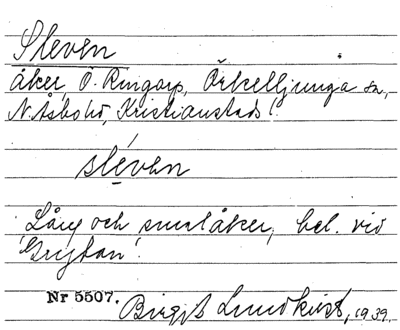 Sleven
åker, Ö. Ringarp, Örkelljunga sn,
N. Åsbo hd, Kristianstads l.
sleven
Lång och smal åker, bel. vid
'Grytan'.
Nr 5507. Birgit Lundkvist, 1939.